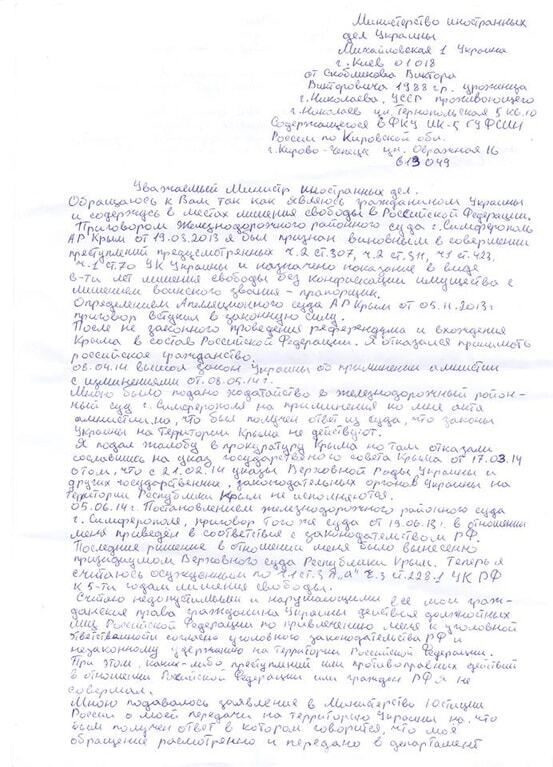 Министерство иностранных
дел Украины
Михайловская 1 Украина
г. Киев 01018
от Скобликова Виктора
Викторовича 1988 г.р. уроженца
г. Николаева, УССР проживающего
г. Николаев ул. Тернопольская 5 кв.10
Содержащегося в ФКУ ИК-5 ГУФСИН
России по Кировской обл.
г. Кирово-Чепецк ул. Овражная 16
613049
Уважаемый Министр иностранных дел.
Обращаюсь к Вам так как являюсь гражданином Украины
и содержусь в местах лишения свободы в Российской Федерации.
Приговором железнодорожного районного суда г. Симферополь
АР Крым от 19.03.2013 я был признан виновным в совершении
преступлений предусмотренных ч.2 ст.307, ч.2 ст.311, ч.1 ст.423,
ч.1 ст.70 УК Украины и назначено наказание в виде
6-ти лет лишения свободы без конфискации имущества с
лишением воинского звания - прапорщик.
Определением Апелляционного суда АР Крым от 05.11.2013г
приговор вступил в законную силу.
После не законного проведения референдума и вхождения
Крыма в состав Российской Федерации. Я отказался принимать
российское гражданство.
08.04.14 вышел закон Украины об применении амнистии
с изменениями от 08.05.14г.
Мною было подано ходатайство в железнодорожный район-
ный суд г. Симферополя на применения ко мне акта
амнистии, на что был получен ответ из суда, что законы
Украины на территории Крыма не действуют.
Я подал жалобу в прокуратуру Крыма но там отказали
сославшись на указ государственного совета Крыма от 17.03.14
о том, что с 21.02.14 указы Верховной Рады Украины и
других государственных, законодательных органов Украины на
территории Республики Крым не исполняются.
05.06.14г. Постановлением железнодорожного районного суда
г. Симферополя, приговор того же суда от 19.06.13г. в отношении
меня приведён в соответствие с законодательством РФ.
Последние решение в отношении меня было вынесено
президиумом Верховного суда Республики Крым. Теперь я
считаюсь осужденном по ч.1 ст.3 п."а" ч.3 ст.228.1 УК РФ
к 5-ти годам лишения свободы.
Считаю недопустимыми и нарушающими все мои граж-
данские права гражданина Украины действия должностных
лиц Российской Федерации по привлечению меня к уголовной
ответственности согласно уголовного законодательства РФ и
незаконному удержанию на территории Российской Федерации.
При этом, каких-либо преступлений или противоправных действий
в отношении Российской Федерации или граждан РФ я не
совершал.
Мною подавалось заявление в Министерство Юстиции
России о моей передачи на территорию Украины на что
был получен ответ в котором говорится, что моя
обращение расмотренно и передано в департамент